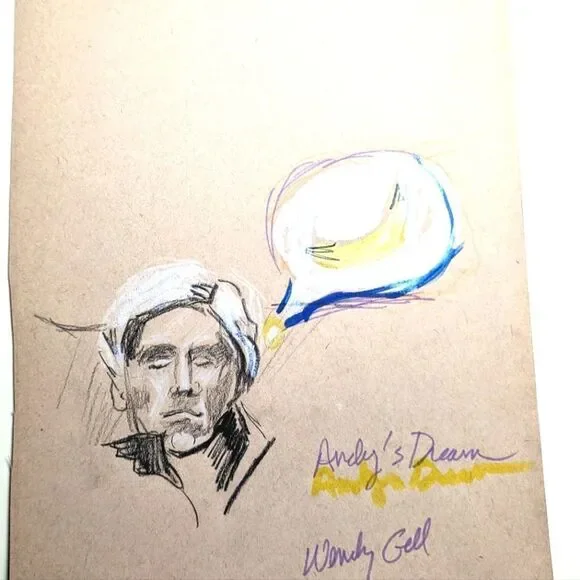 Andy's Dream
Andy's Dream
Wendy Gell